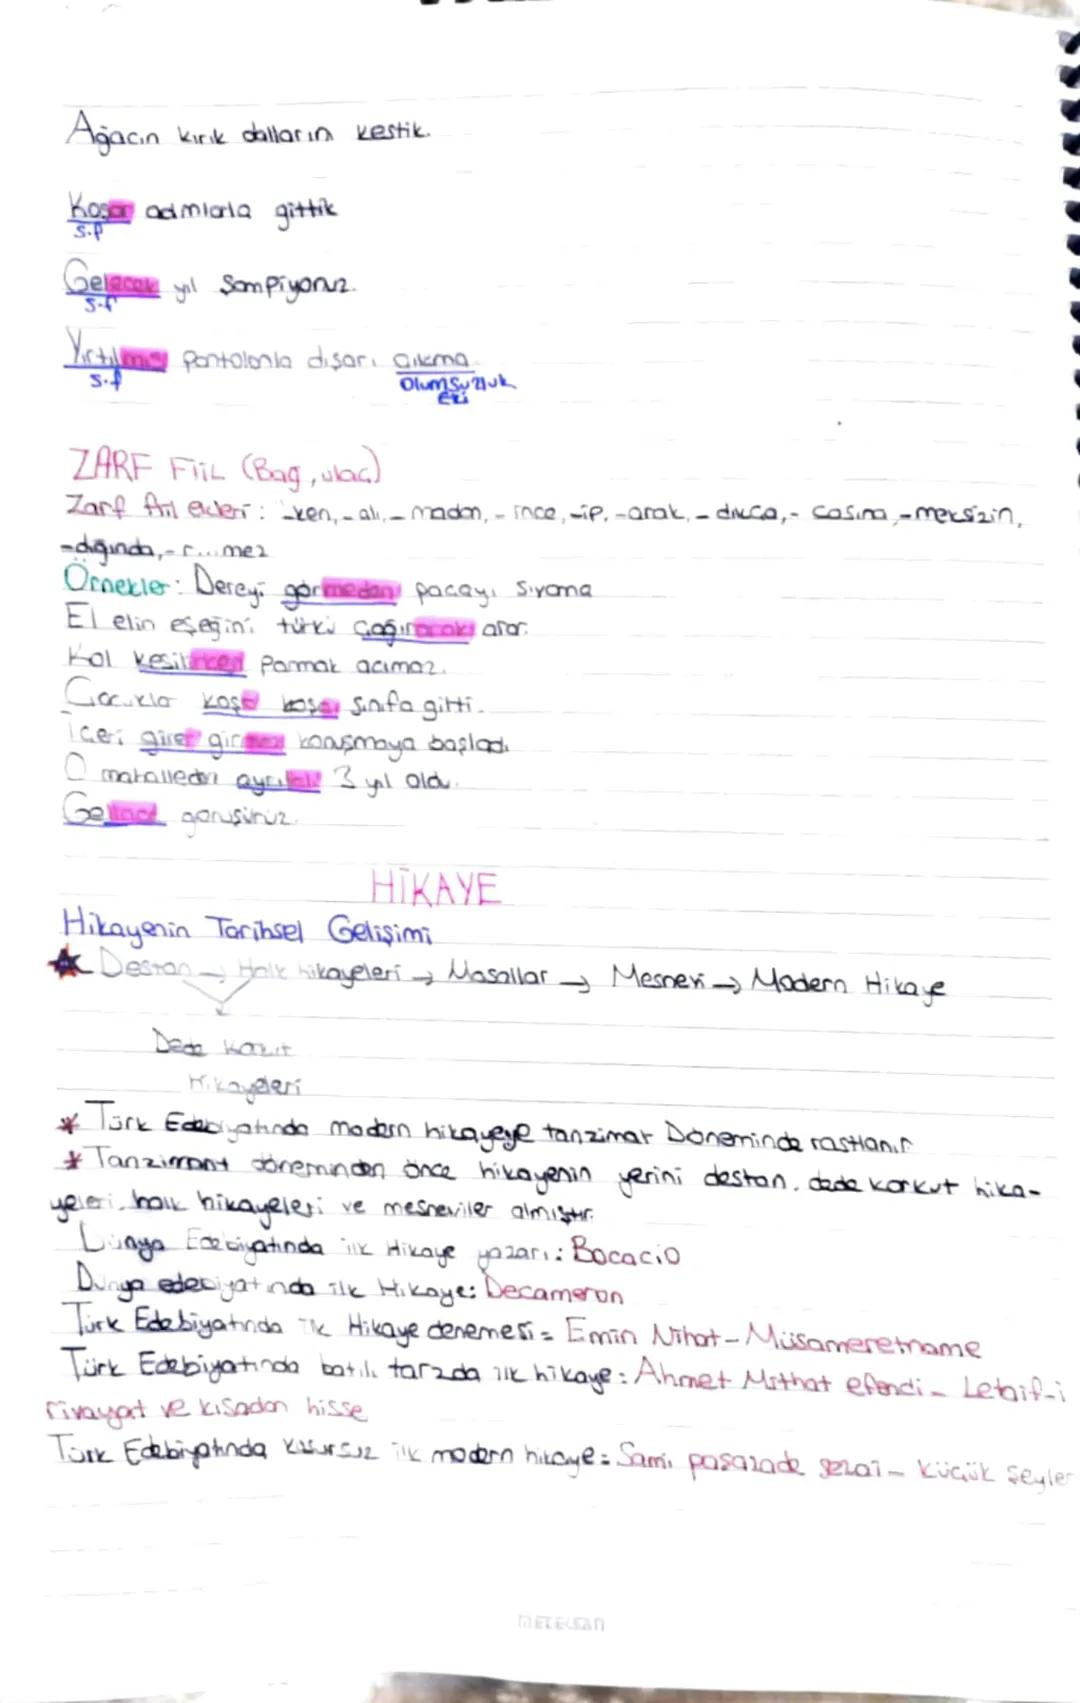 Ağacın kırık dalların kestik.
Koşar adımlarla gittik
s.f
Gelecek yıl Şampiyonuz.
s.f
Yırtılmış pantolonla dışarı çıkma
s.f
Olumsuzluk
Eki
ZARF FİİL (Bag, ulaç)
Zarf fiil ekleri: -ken, -alı, -madan, -ince, -ip, -arak, -dıkca, -casına, -meksizin,
-dığında, -r...mez
Örnekler: Dereyi görmeden paçayı sıvama
El elin eşeğini türkü çağırarak arar.
Kol kesilirken parmak acımaz.
Çocuklar koşa koşa sınıfa gitti.
İçeri girer girmez konuşmaya başladı
O mahalleden ayrılalı 3 yıl oldu.
Gelince görüşürüz.
HİKAYE
Hikayenin Tarihsel Gelişimi
Destan → Halk hikayeleri → Masallar → Mesnevi → Modern Hikaye
Dede Korkut
Hikayeleri
* Türk Edebiyatında modern hikayeye tanzimat Döneminde rastlanır
* Tanzimant döneminden önce hikayenin yerini destan, dede korkut hika-
yeleri, halk hikayeleri ve mesneviler almıştır.
Dünya Edebiyatında ilk Hikaye yazarı: Bocacio
Dünya edebiyatında ilk Hikaye: Decameron
Türk Edebiyatında ilk Hikaye denemesi = Emin Nihat - Müsameretname
Türk Edebiyatında batılı tarzda ilk hikaye: Ahmet Mithat efendi - Letaif-i
rivayat ve kısadan hisse
Türk Edebiyatında kusursuz ilk modern hikaye = Sami paşazade sezai - Küçük Şeyler
METEKSAN